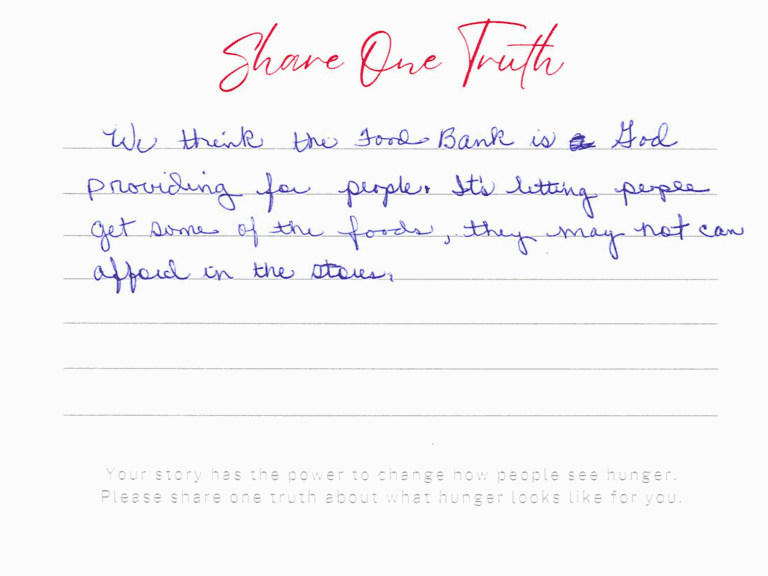 Share One Truth
We think the Food Bank is God
providing for people. It's letting people
get some of the foods, they may not can
afford in the stores.
Your story has the power to change how people see hunger.
Please share one truth about what hunger looks like for you.